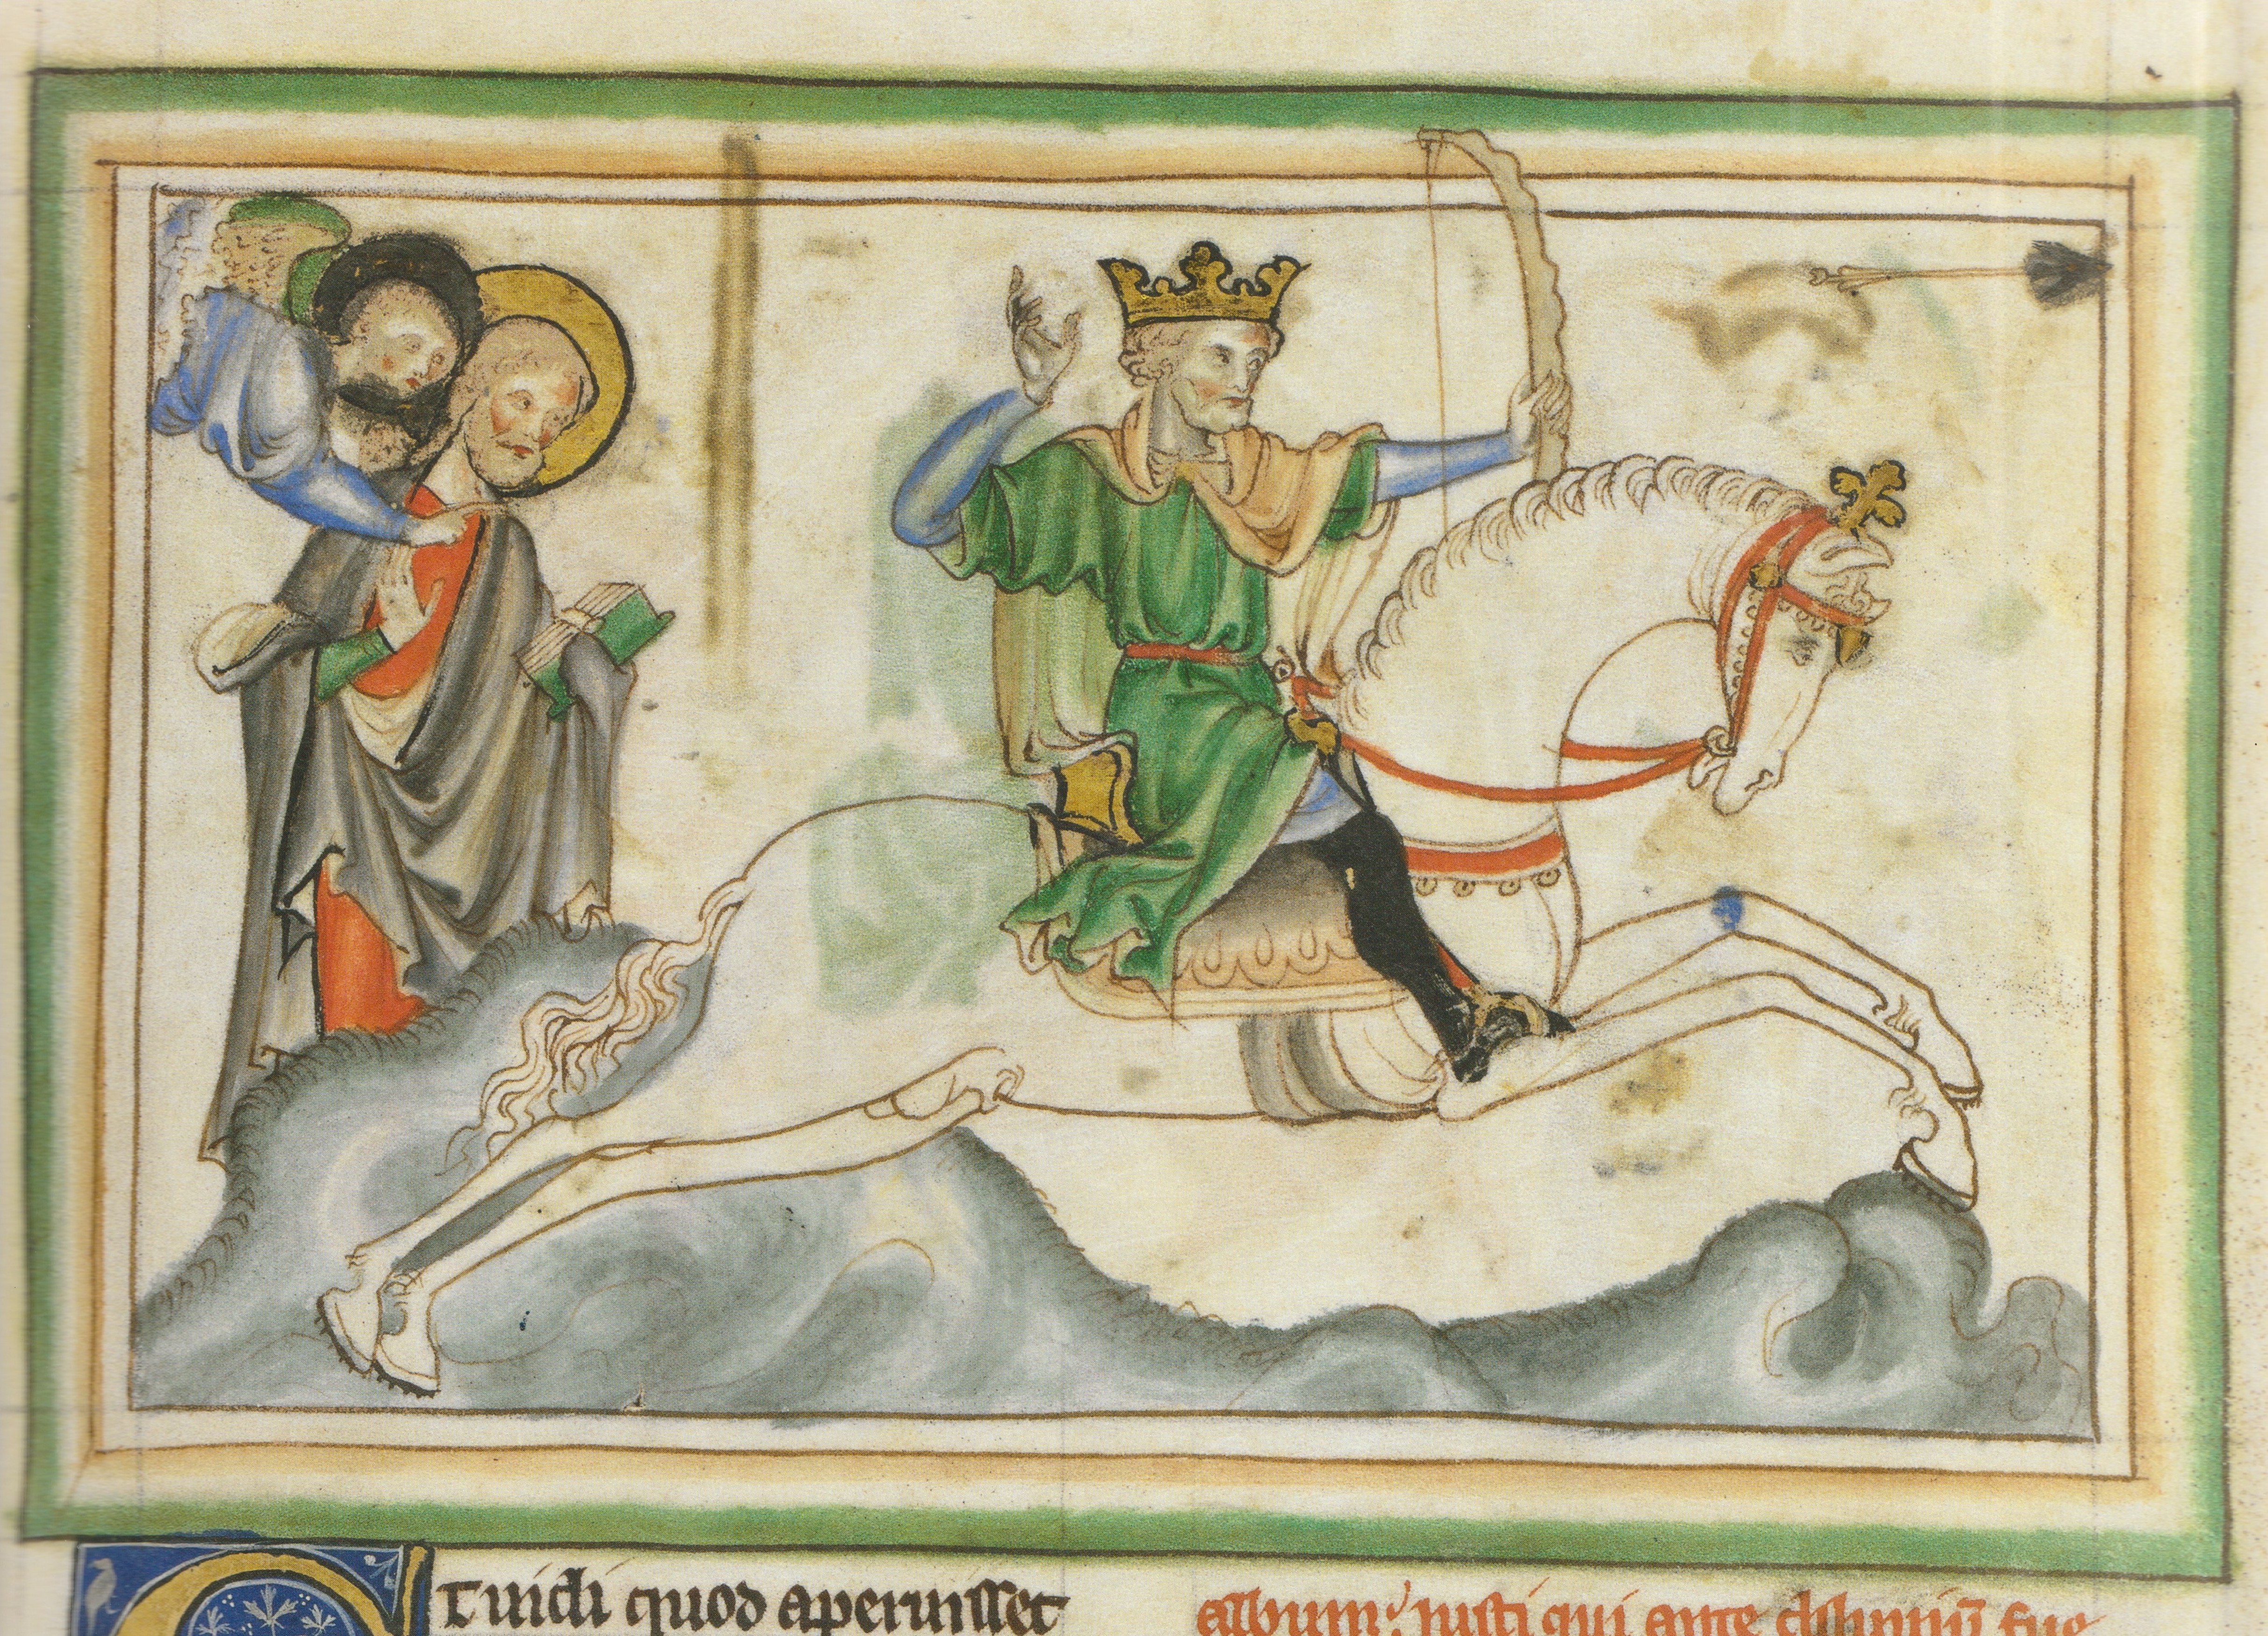 Et vidi quod aperuisset
album; iusti qui ante diluuiū fue